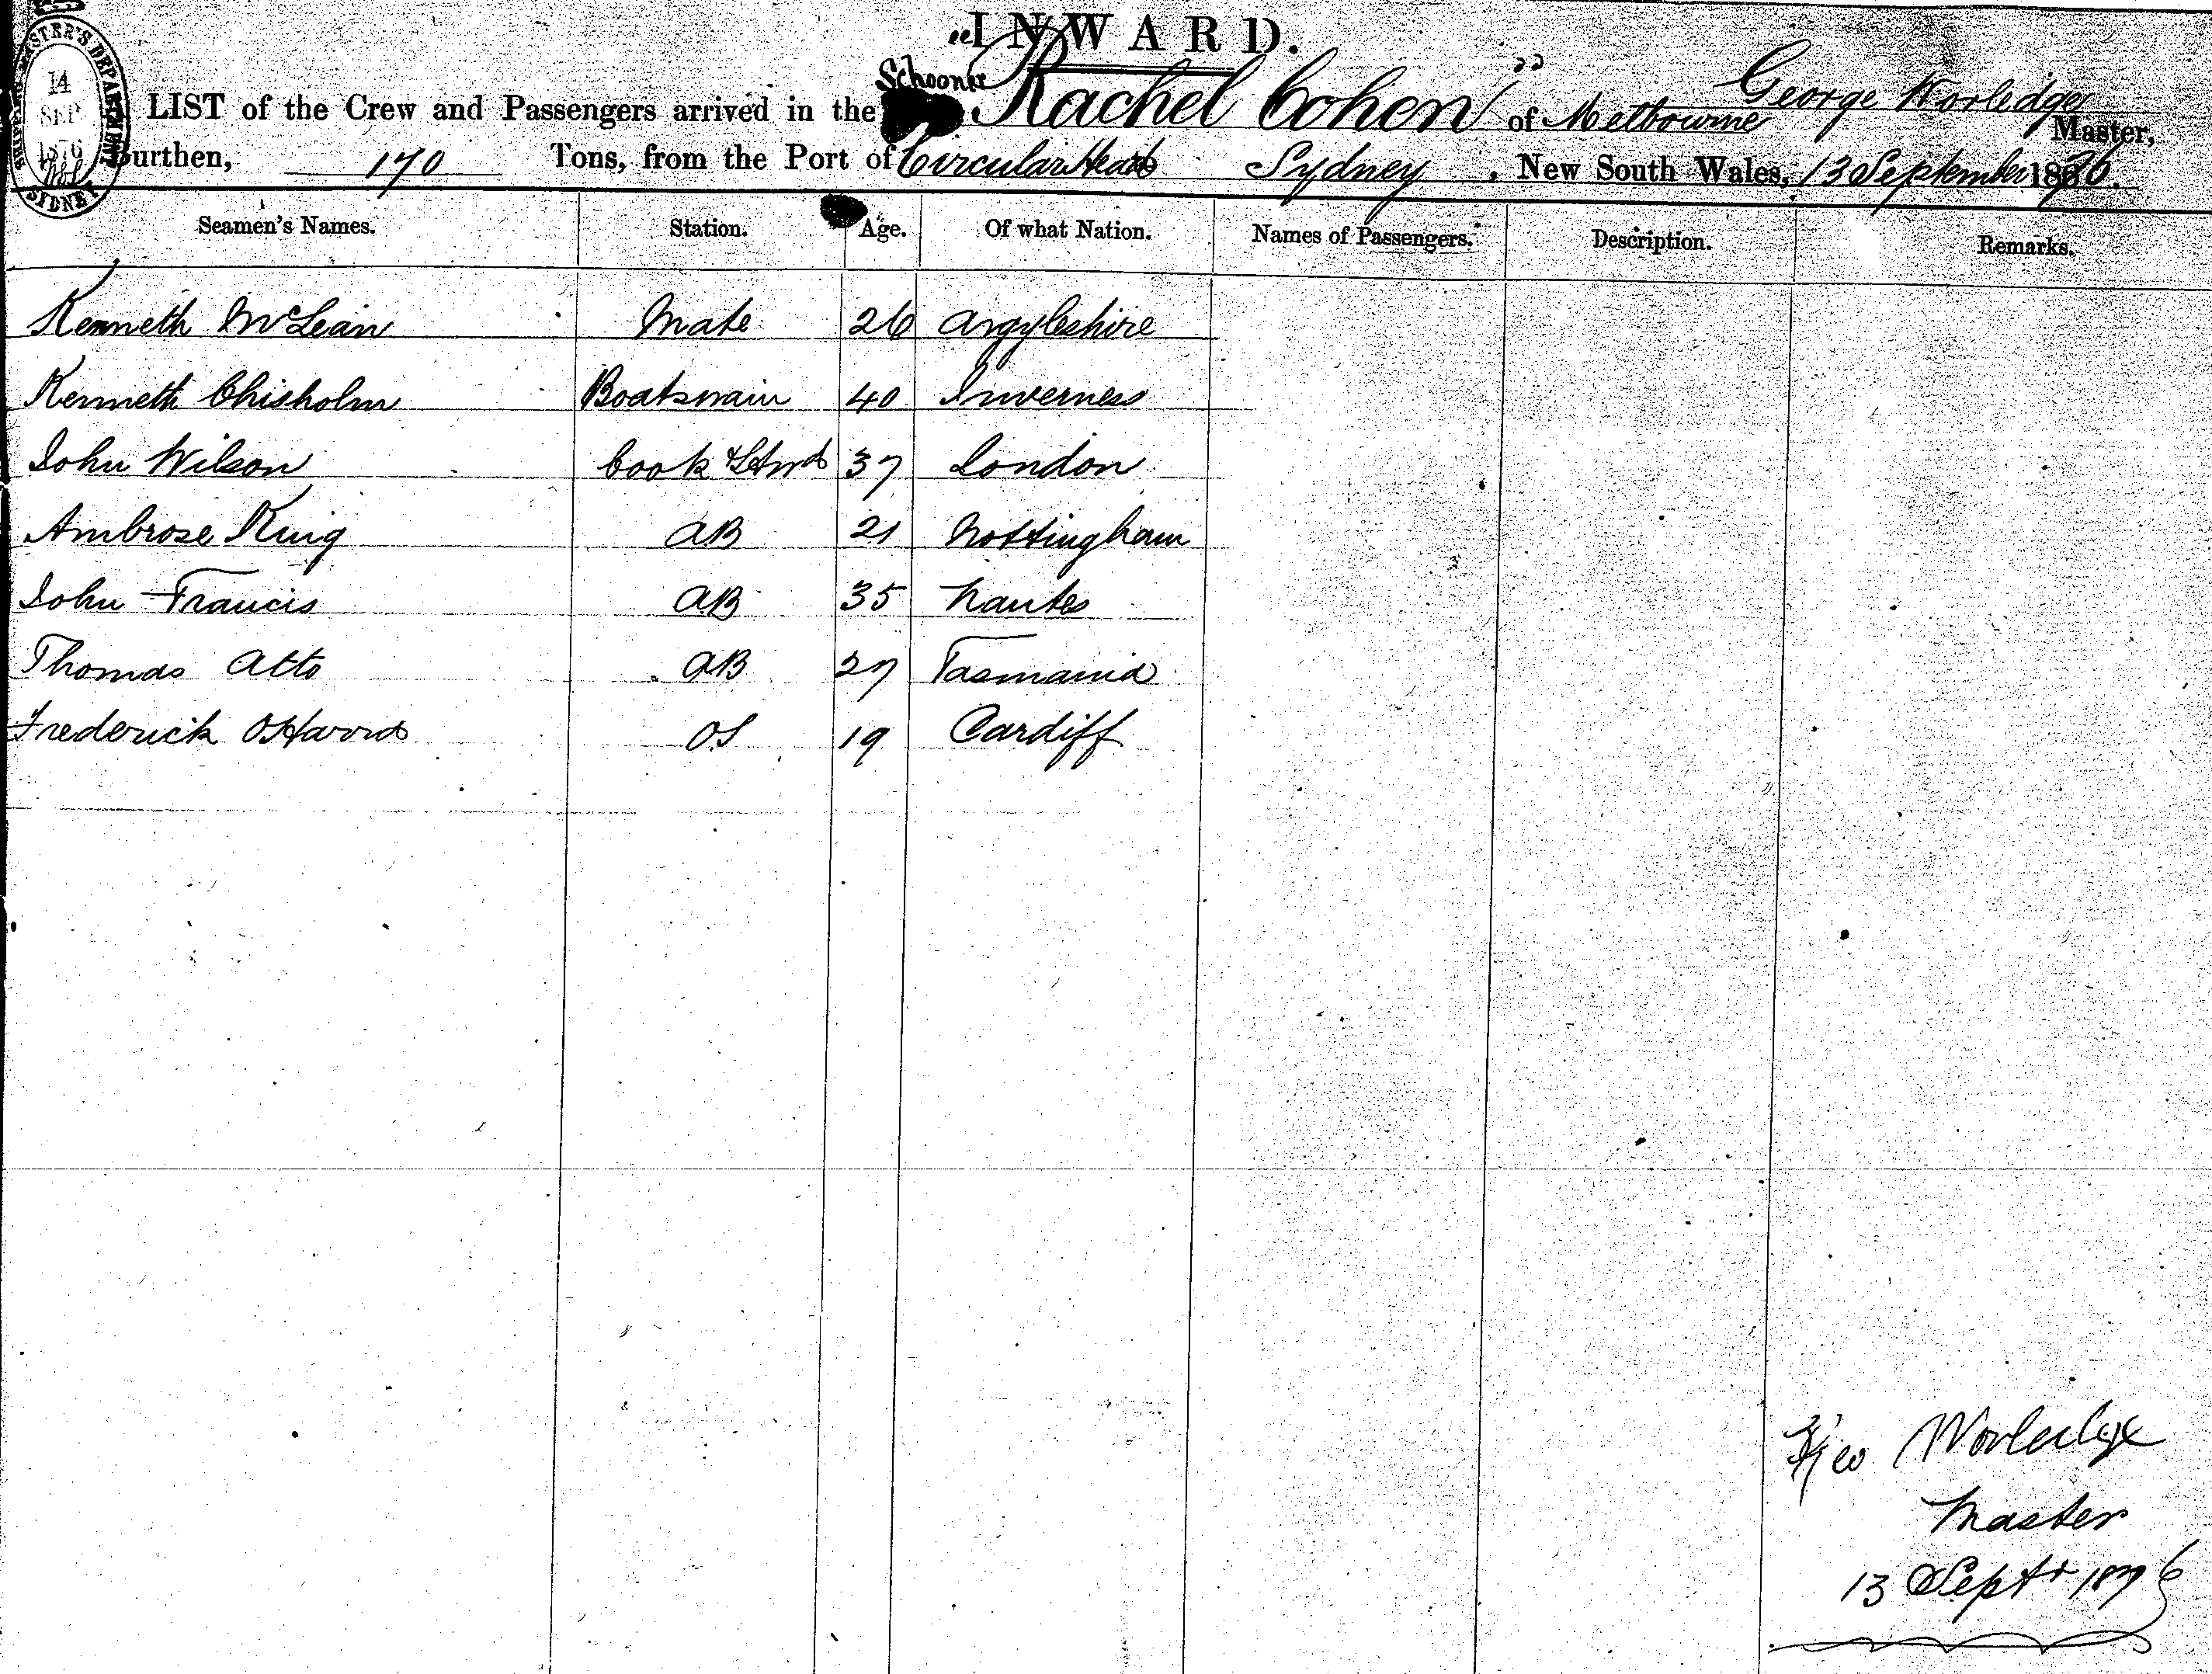 INWARD.
LIST of the Crew and Passengers arrived in the Schooner "Rachel Cohen" of Melbourne George Worledge Master,
Burthen, 170 Tons, from the Port of Circular Head Sydney, New South Wales, 13 September 1876.
SHIPPING MASTER'S DEPARTMENT
14
SEP
1876
SYDNEY
Seamen's Names. Station. Age. Of what Nation. Names of Passengers. Description. Remarks.
Kenneth McLean Mate 26 Argyleshire
Kenneth Chisholm Boatswain 40 Inverness
John Wilson Cook & Stwd 37 London
Ambrose King AB 21 Nottingham
John Francis AB 35 Nantes
Thomas Atto AB 27 Tasmania
Frederick OS 19 Cardiff
Geo Worledge
Master
13 Septr 1876